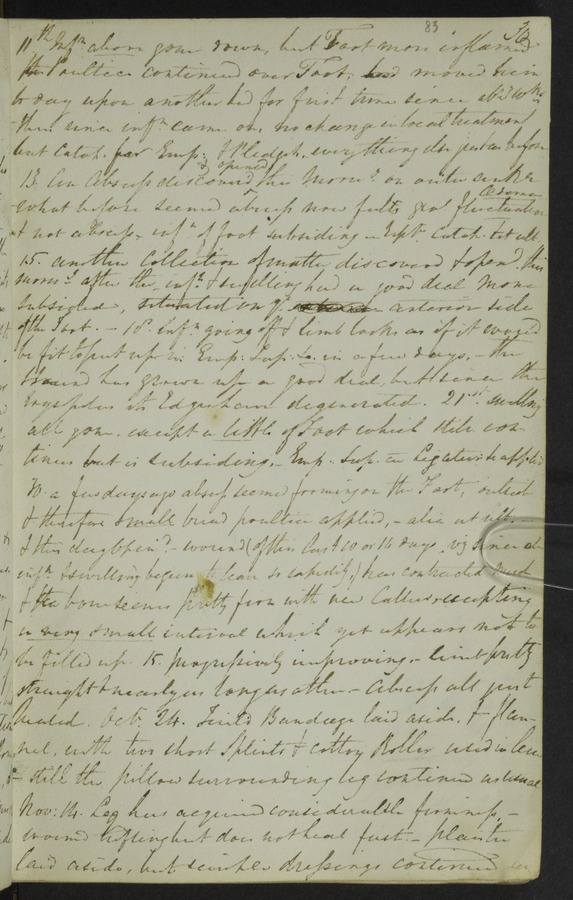 83
11th Infn above gone down, but Foot more inflamed
the Poultice continued over Foot, moved him
to day upon another bed for first time since
then since infn came on, no change in local treatment
but Catap. for Emp: & Pledgets, everything else just as before
13. An Abscess discovered & opened this Morng on outer ankle
what before seemed abscess now feels genl Fluctuation
& not abscess, infn of foot subsiding - Empt Catap.
15. another Collection of matter discovered & opened this
morng after the infn & swelling had a good deal more
subsided, situated on ye anterior side
of the Foot. - 18. infn going off & limb looks as if it would
be fit to put up in Emp: Sap: in a few days, - the
Wound has grown up a good deal, but since the
Erysipelas its Edges have degenerated. 21st swelling
all gone, except a little of Foot which still con-
tinues but is subsiding. Emp. Sap. applied
a few days ago abscess seemed forming on the Foot,
& therefore small bread poultice applied, -
& this day opend - wound (of this last 10 or 14 days, viz since
infn & swelling began to leave so rapidly,) has contracted much
& the bone seems pretty firm with new Callus excepting
a very small interval which yet appears not to
be filled up. 15. progressively improving, - limb pretty
straight & nearly as long as other - abscess all just
healed. Oct. 24. Tin'd Bandage laid aside, & Flan-
nel, with two short Splints & cotton Roller used in lieu
- still the pillow surrounding leg continued as usual
Nov: 14. Leg has acquired considerable firmness, -
wound but does not heal fast - plaister
laid aside, but simple dressings continued